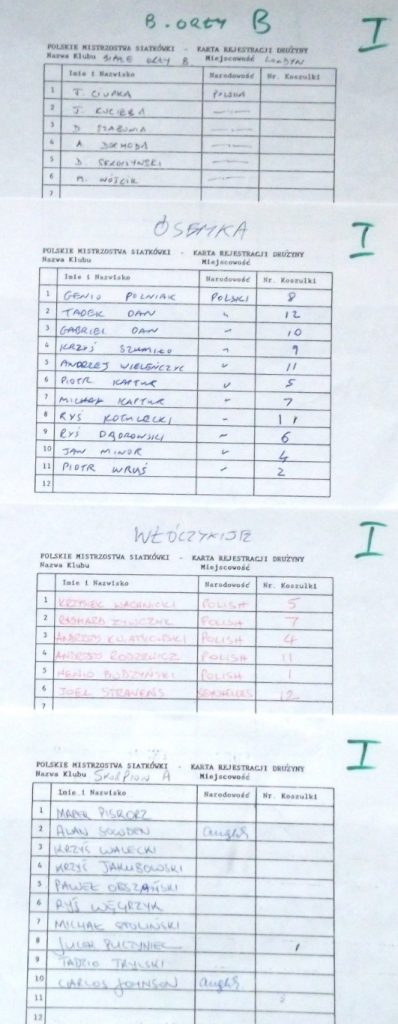 B. ORŁY B
I
POLSKIE MISTRZOSTWA SIATKÓWKI - KARTA REJESTRACJI DRUŻYNY
Nazwa Klubu BIAŁE ORŁY B Miejscowość LONDYN
Imie i Nazwisko Narodowość Nr. Koszulki
1 T. CIUPKA POLSKA
2 J. KUCIEBA
3 D.
4 A.
5 D.
6 M. WÓJCIK
7
ÓSEMKA
I
POLSKIE MISTRZOSTWA SIATKÓWKI - KARTA REJESTRACJI DRUŻYNY
Nazwa Klubu Miejscowość
Imie i Nazwisko Narodowość Nr. Koszulki
1 GENIO POLNIAK POLSKI 8
2 TADEK DAN 12
3 GABRIEL DAN 10
4 KRZYŚ 9
5 ANDRZEJ 11
6 PIOTR KAPTUR 5
7 KAPTUR 7
8 RYŚ 11
9 RYŚ DĄBROWSKI 6
10 JAN MINOR 4
11 PIOTR WRUŚ 2
12
WŁÓCZYKIJE
I
POLSKIE MISTRZOSTWA SIATKÓWKI - KARTA REJESTRACJI DRUŻYNY
Nazwa Klubu Miejscowość
Imie i Nazwisko Narodowość Nr. Koszulki
1 POLISH 5
2 POLISH 7
3 ANDRZEJ POLISH 4
4 ANDRZEJ RODZEWICZ POLISH 11
5 HENIO BUDZYŃSKI POLISH 1
6 JOEL STRAVENS SEYCHELLES 12
7
I
POLSKIE MISTRZOSTWA SIATKÓWKI - KARTA REJESTRACJI DRUŻYNY
Nazwa Klubu SKORPION A Miejscowość
Imie i Nazwisko Narodowość Nr. Koszulki
1 MAREK PISKORZ
2 ALAN SOWDEN
3 KRZYŚ WALECKI
4 KRZYŚ JAKUBOWSKI
5 PAWEŁ OBSZAŃSKI
6 RYŚ WĘGRZYK
7 MICHAŁ STOLIŃSKI
8 JULEK
9 TADZIO TRYLSKI
10 CARLOS JOHNSON
11
12